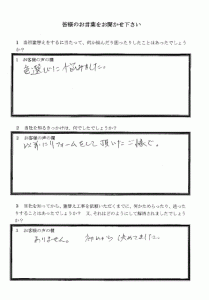 皆様のお言葉をお聞かせ下さい
1 当初塗替えをするに当たって、何か悩んだり困ったりしたことはあったでしょうか?
1 お客様の声の欄
色選びに悩みました。
2 当社を知るきっかけは、何でしたでしょうか?
2 お客様の声の欄
以前にリフォームをして頂いたご縁で。
3 当社を知ってから、塗替え工事を依頼いただくまでに、何かためらったり、迷ったりすることはあったでしょうか? 又、それはどのようにして解消されましたでしょうか?
3 お客様の声の欄
ありません。
決めてました